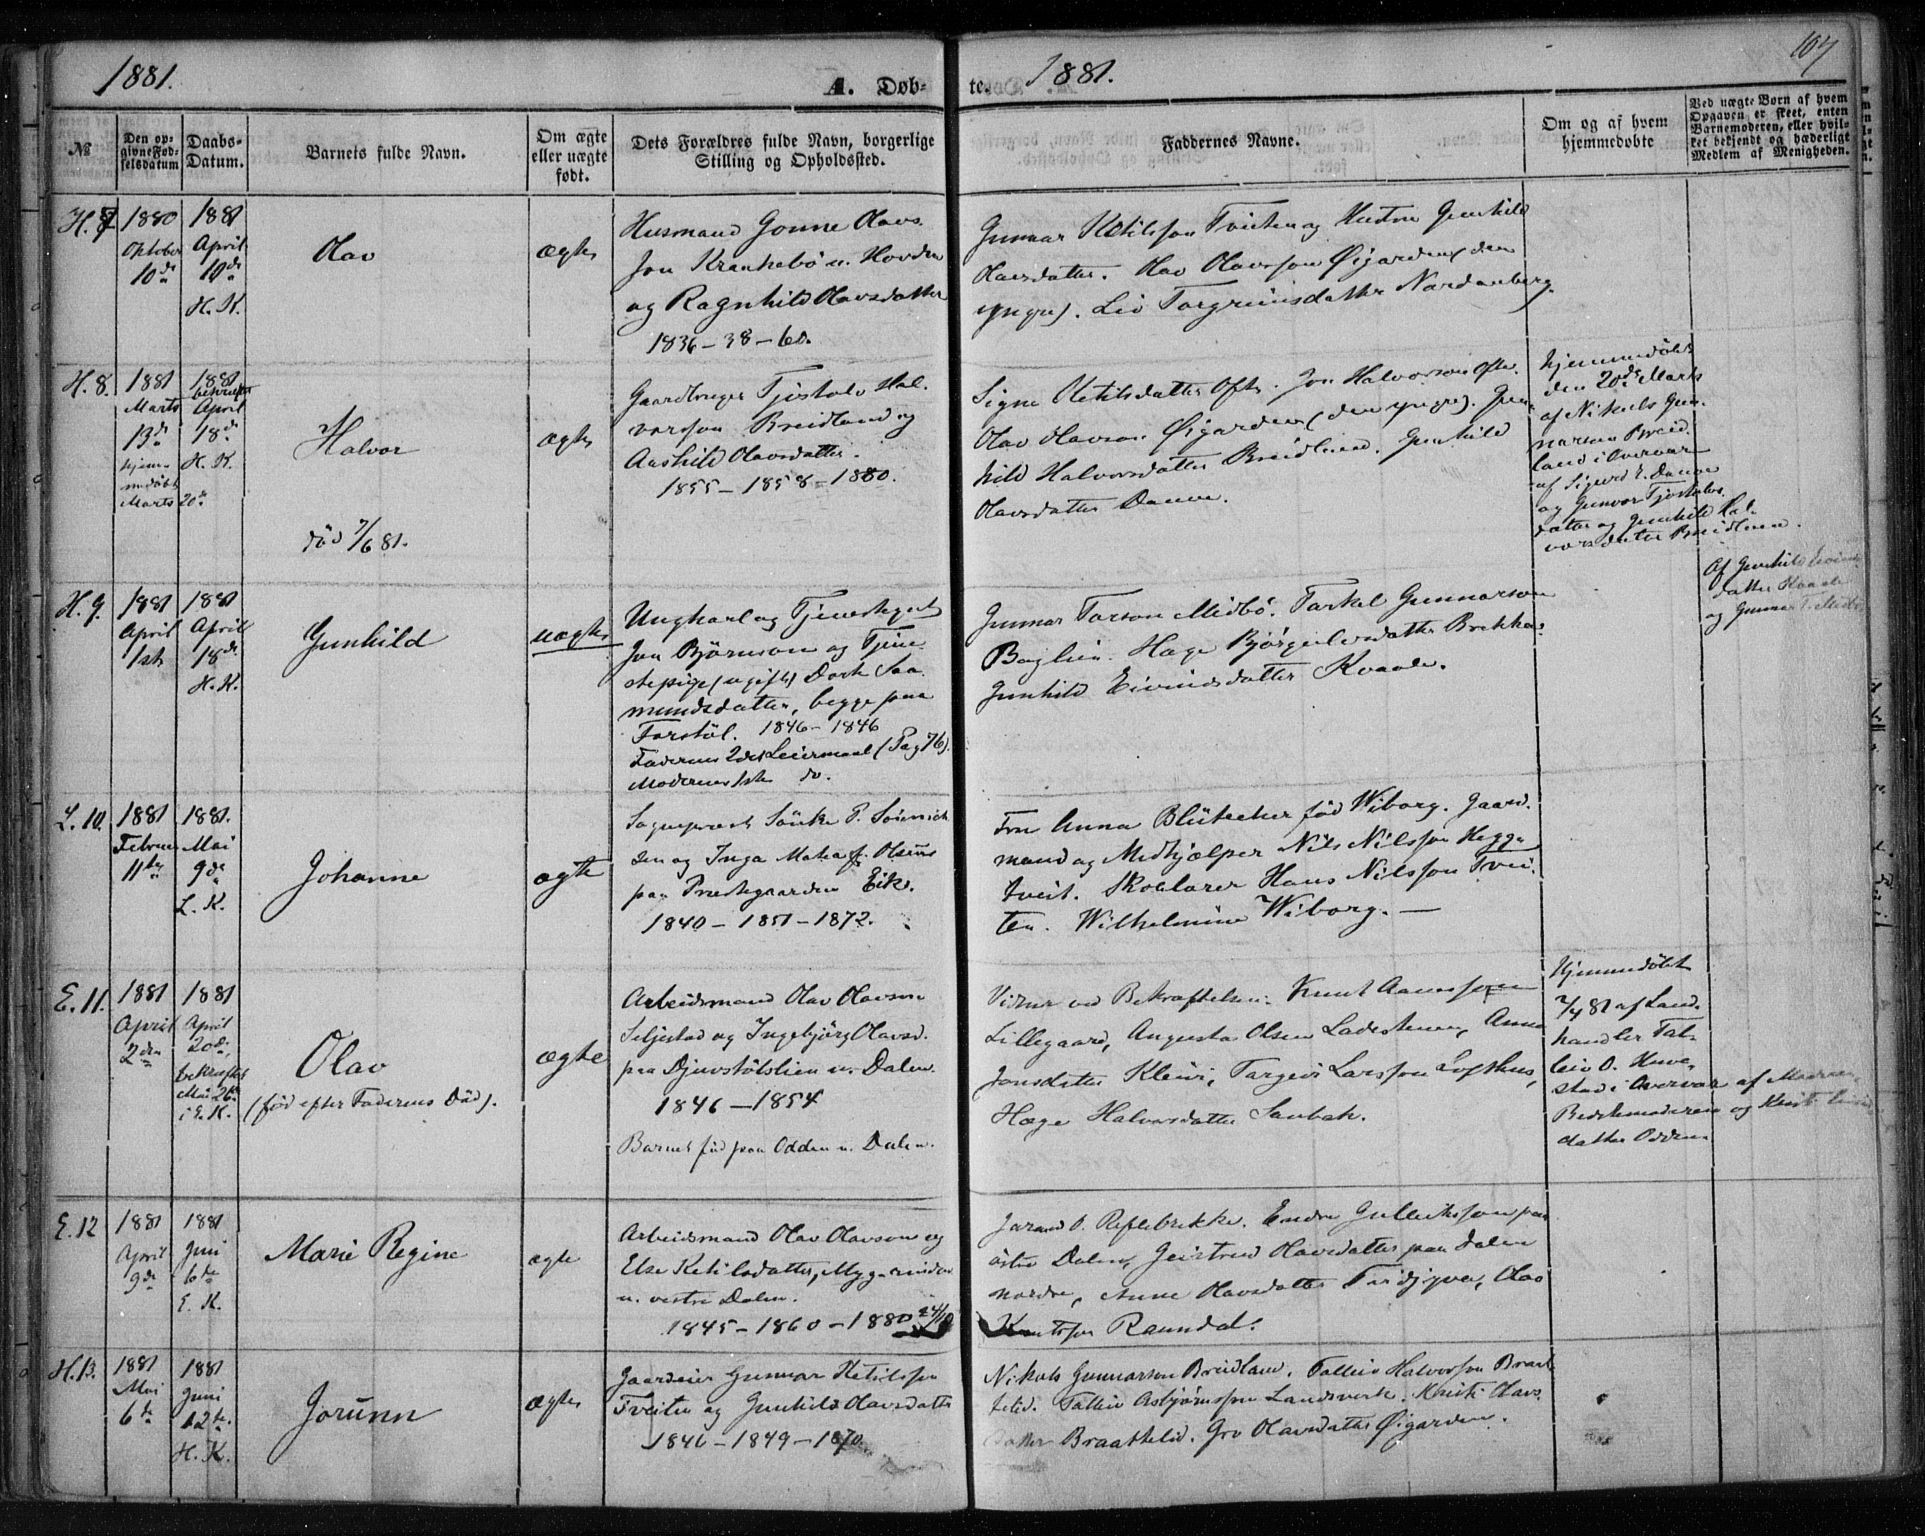 1881.
A. Døb-
te.
1881.
107
№
Den op-
givne Fød-
selsdatum
Daabs-
Datum.
Barnets fulde Navn.
Om ægte
eller uægte
født.
Dets Forældres fulde Navn, borgerlige
Stilling og Opholdssted.
Faddernes Navne.
Om og af hvem
hjemmedøbte
Ved uægte Børn af hvem
Opgaven er skeet, enten
Barnemoderen, eller hvil-
ket bekjendt og hæderligt
Medlem af Menigheden.
H. 7
1880
Oktober
10de
1881
April
10de
H. K.
Olav
ægte
Husmand Gonne Olavs-
son Krankebö u. Hovden
og Ragnhild Olavsdatter
1836 - 38 - 60.
Gunnar Ketilsson Tveiten og Hustru Gunhild
Olavsdatter. Olav Olavsson Øigarden (den
yngre). Liv Targrimsdatter Nordanberg.
H. 8.
1881
Marts
13de
hjem-
medöbt
Marts 20de
1881
bekræftet
April
18de
H. K.
Halvor
død 7/6 81.
ægte
Gaardbruger Tjostolv Hal-
vorsson Breidland og
Aashild Olavsdatter.
1855 - 1858 - 1880.
Signe Ketilsdatter Ofte. Jon Halvorson Ofte.
Olav Olavson Øigarden (den yngre). Gun-
hild Halvorsdatter Breidlien. Gunhild
Olavsdatter
hjemmedöbt
den 20de Marts
af Nikuls Gun-
narson Breid-
land i Overvær
af Sigurd E.
og Gunvor Tjostolvs-
datter og Gunhild Hal-
vorsdatter Breidlien.
H. 9.
1881
April
1ste
1881
April
18de
H. K.
Gunhild
uægte
Ungkarl og Tjenestegut
Jon Björnson og Tjene-
stepige (ugift) Dorte Saa-
mundsdatter, begge paa
Forstöl. 1846 - 1846
Faderens 2det Leiermaal (Pag 76).
Moderens 1ste do.
Gunnar Torson Midbö. Tarkel Gunnarson
Baglien. Hæge Bjørgulvsdatter Brekka.
Gunhild Eivindsdatter Kvaale.
Af Gunhild Eivinds-
datter Kvaale
og Gunnar T. Midbö
L. 10.
1881
Februar
11te
1881.
Mai
9de
L. K.
Johanne
ægte
Sogneprest Sönke P. Sönnich-
sen og Inga Matea f. Olsens
paa Præstegaarden Eik.
1840 - 1851 - 1872.
Fru Anna Blütecher fød Wiborg. Gaard-
mand og Medhjælper Nils Nilsson Hegga
tveit. Skolelærer Hans Nilsson Tvei-
ten. Wilhelmine Wiborg. —
E. 11.
1881
April
2den
1881
April
20de,
bekræftet
Mai 26de
i E. K.
Olav
(född efter Faderens Död).
ægte
Arbeidsmand Olav Olavson
Seljestad og Ingebjörg Olavsd.
paa Djuvstölslien u. Dalen.
1846 - 1854
Barnet född paa Odden u. Dalen.
Vidner ved Bekræftelsen: Knut Aanesson
Lillegaard, Augusta Olsen Ladestenen, Anne
Jonsdatter Kleivi, Targeir Larsson Lofthus,
Hæge Halvorsdatter Saubak.
Hjemmedöbt
7/4 81 af Land-
handler Tal-
leiv O. Huve-
stad i Overvær af Moderen,
Bedstemoderen og
datter Odden
E. 12
1881
April
9de
1881
Juni
6te
E. K.
Marie Regine
ægte
Arbeidsmand Olav Olavson og
Else Ketilsdatter,
u. vestre Dalen.
1845 - 1860 - 1880 24/10
Jarand O. Reflebrekke. Endre Gulleiksson paa
östre Dalen, Geirtrud Olavsdatter paa Dalen
nordre, Anne Olavsdatter Tveidjyva, Olav
Knutsson Raundal.
H. 13.
1881
Mai
6te
1881
Juni
12te.
H. K.
Jorunn
ægte
Gaardeier Gunnar Ketilsson
Tveiten og Gunhild Olavsdatter
1846 - 1849 - 1870.
Nikuls Gunnarson Breidland. Talleiv Halvorsson Braat-
telid. Talleiv Asbjørnsson Landsverk. Kristi Olavs-
datter Braattelid. Gro Olavsdatter Øigarden.